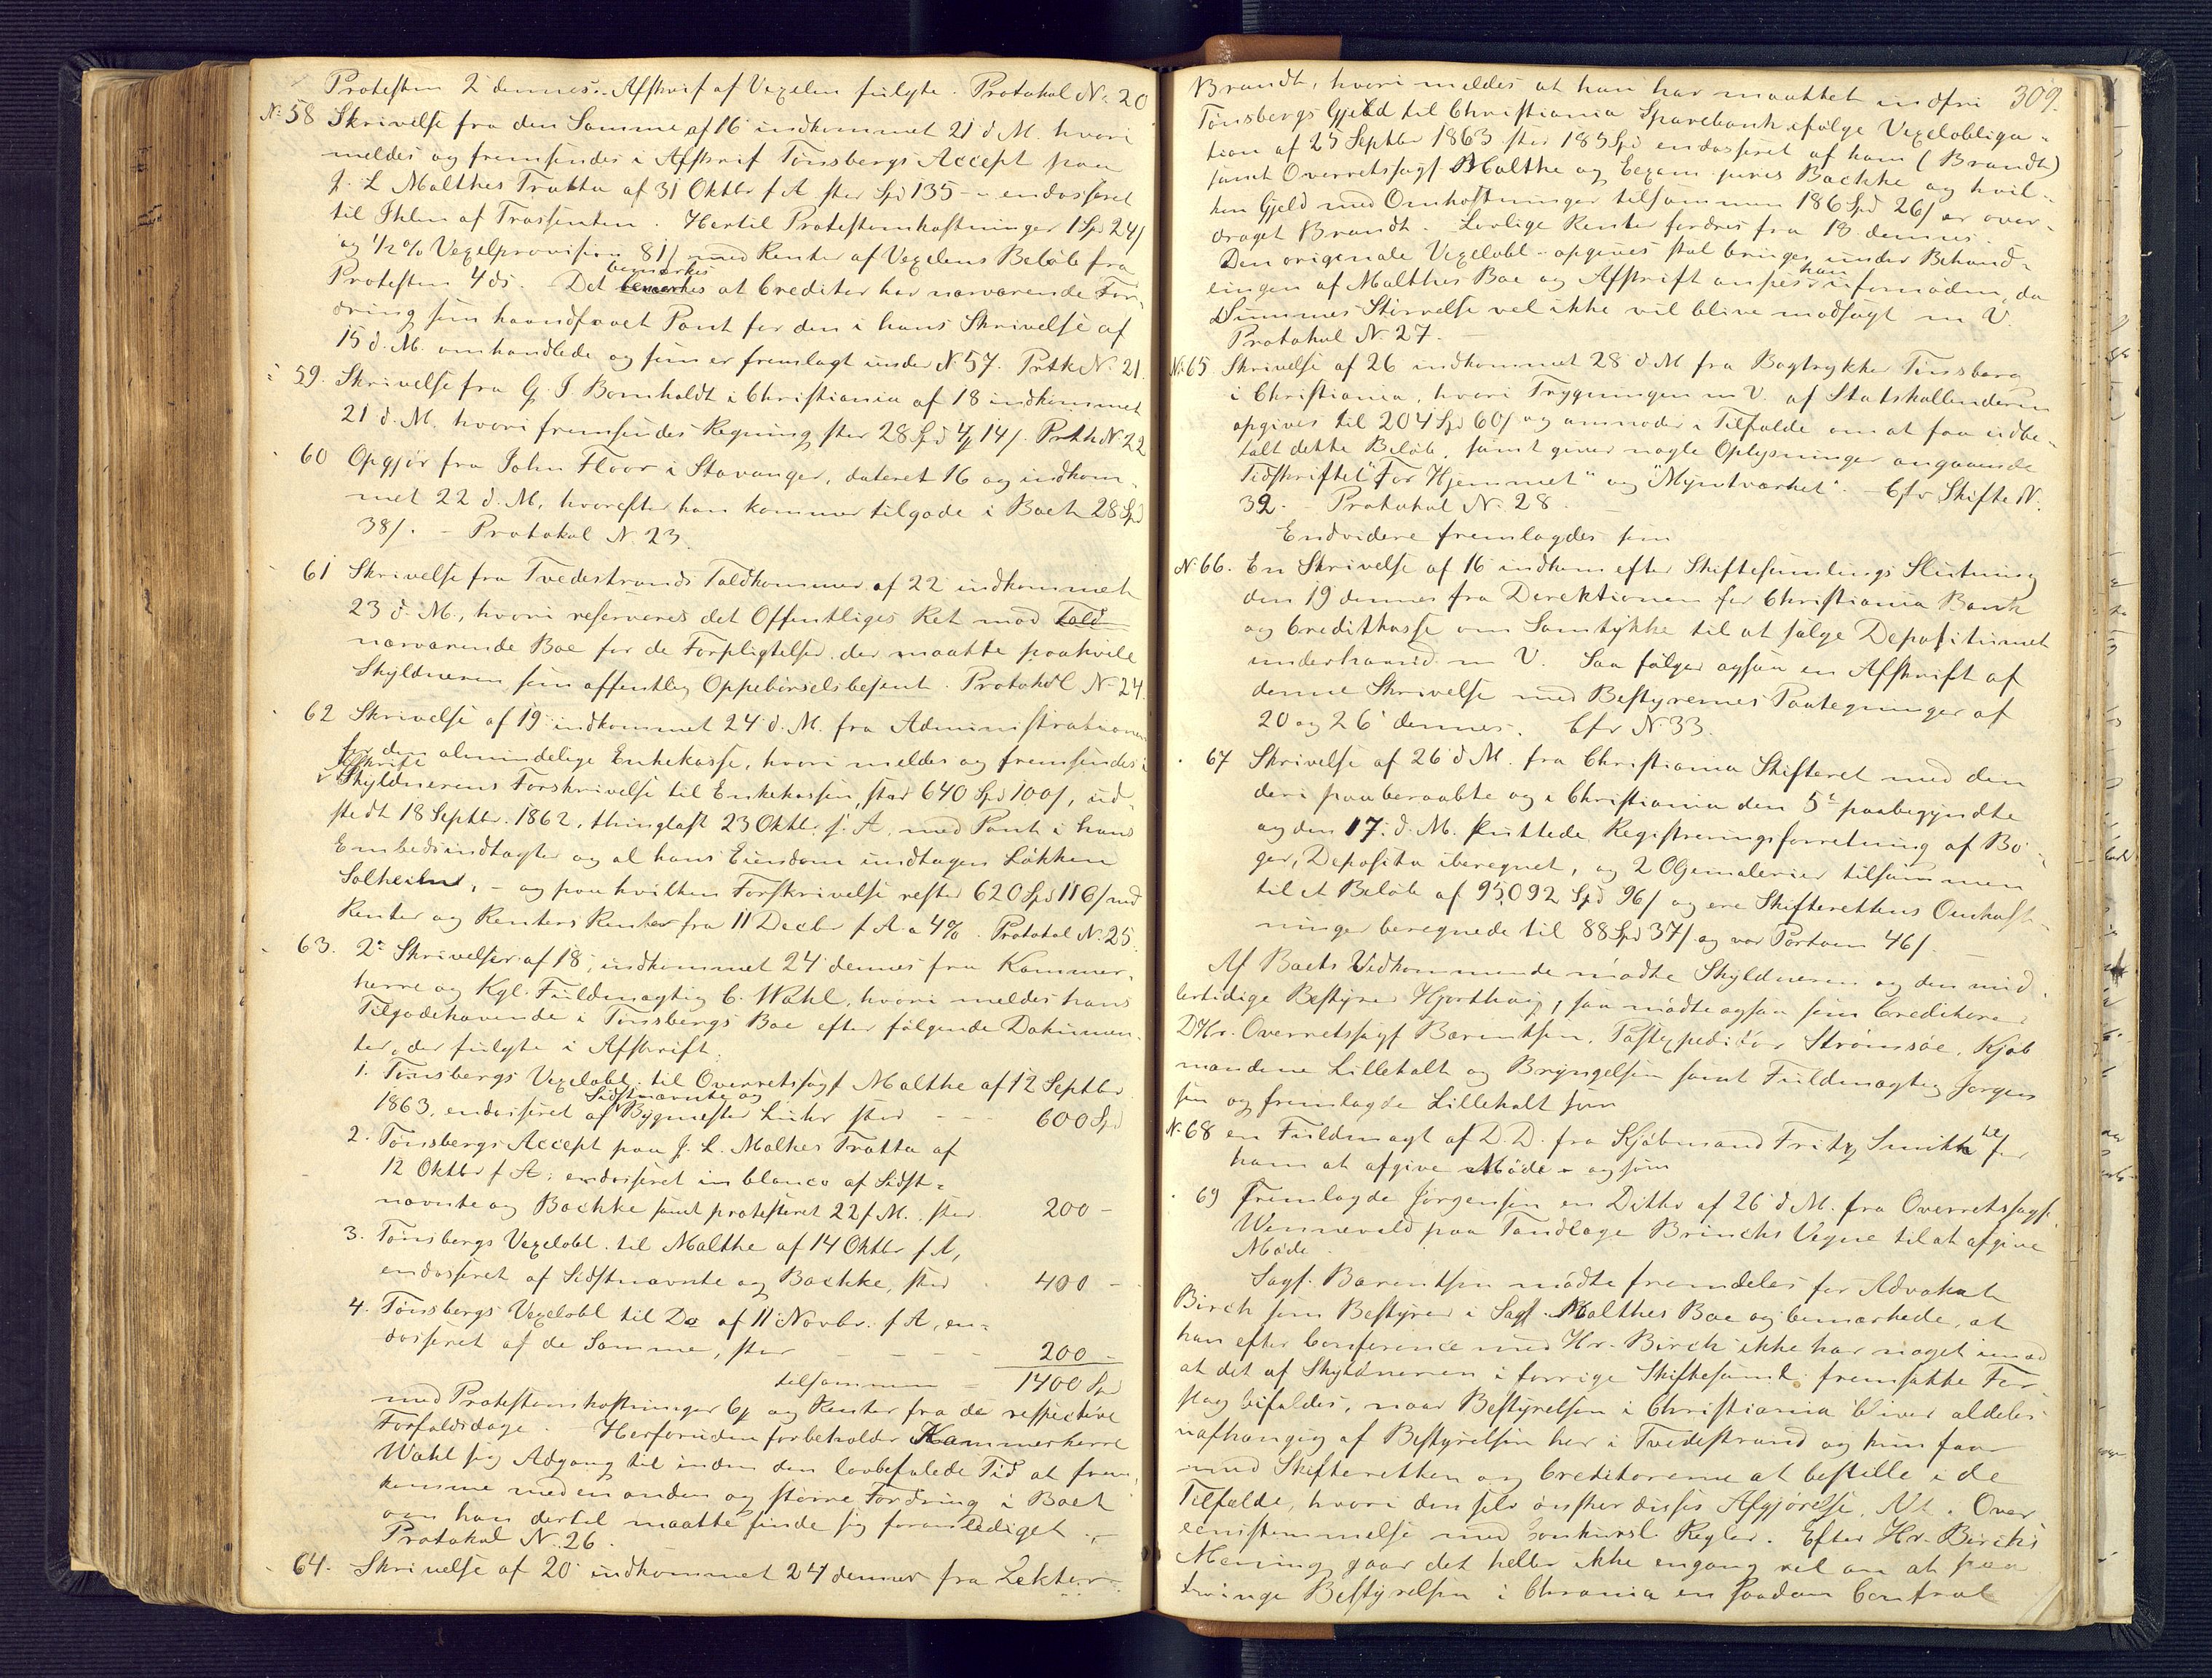 Protesten 2 dennes. Afskrif af Vexelen fulgte. Protokol N. 20
N. 58 Skrivelse fra den Samme af 16 indkommet 21 d M. hvori
meldes og fremsendes i Afskrif Tønsbergs Accept paa
J. L Malthes Tratta af 31 Oktbr f A stor Spd 135 - endosseret
til Ihlen af Trassenten. Hertil Protestomkostninger 1 Spd 24 s
og 1/2 % Vexelprovision 81 s med Renter af Vexelens Beløb fra
Protesten 4 ds. Det bemærkes at Creditor har nærværende For-
dring som haandfaaet Pant for den i hans Skrivelse af
15 d. M. omhandlede og som er fremlagt under N. 57. Prtk N. 21
59. Skrivelse fra G. J Bomholdt i Christiania af 18 indkommet
21 d. M. hvori fremsendes Regning stor 28 Spd 4 14 s. Prtk N. 22
60 Opgjør fra John Floor i Stavanger, dateret 16 og indkom-
met 22 d. M. hvorefter han kommer tilgode i Boet 28 Spd
38 s. - Protokol N. 23.
61 Skrivelse fra Tvedestrands Toldkammer af 22 indkommet
23 d. M, hvori reserveres det Offentliges Ret mod Told
nærværende Boe for de Forpligtelser der maatte paahvile
Skyldneren som offentlig Oppebørselsbetjent. Protokol N. 24.
62 Skrivelse af 19 indkommet 24 d. M. fra Administrationen
for den almindelige Enkekasse, hvori meldes og fremsendes i
Afskrift
Skyldnerens Forskrivelse til Enkekassen, stor 640 Spd 100 s, ud-
stedt 18 Septbr. 1862, thinglæst 23 Oktbr. s. A. med Pant i hans
Embedsindtægter og al hans Eiendom undtagen Løkken
Solheim, - og paa hvilken Forskrivelse rester 620 Spd 116 s med
Renter og Renters Renter fra 11 Decbr f A a 4 %. Protokol N. 25.
63. 2de Skrivelser af 18, indkommet 24 dennes fra Kammer-
herre og Kgl. Fuldmægtig C. Wahl, hvori meldes hans
Tilgodehavende i Tønsbergs Boe efter følgende Dokumen-
ter, der fulgte i Afskrift:
1. Tønsbergs Vexelobl. til Overretssagf Malthe af 12 Septbr
1863, endosseret af Sidstnævnte og Bygmester stor - - 600 Spd
2. Tønsbergs Accept paa J. L. Malthes Tratta af
12 Oktbr f A; endosseret in blanco af Sidst-
nævnte og Backke samt protesteret 22 f M. stor 200 -
3. Tønsbergs Vexelobl. til Malthe af 14 Oktbr f A,
endosseret af Sidstnævnte og Backke, stor - 400 -
4. Tønsbergs Vexelobl til Do af 11 Novbr. f A, en-
dosseret af de Samme, stor - - - - 200 -
tilsammen - 1400 Spd
med Protestomkostninger og Renter fra de respective
Forfaldsdage. - Herforuden forbeholder Kammerherre
Wahl sig Adgang til inden den lovbefalede Tid at frem-
komme med en anden og større Fordring i Boet
om han dertil maatte finde sig foranlediget.
Protokol N. 26.
64. Skrivelse af 20 indkommet 24 dennes fra Lektor
309.
Brandt, hvori meldes at han har maattet indfri
Tønsbergs Gjeld til Christiania Sparebank ifølge Vexelobliga-
tion af 25 Septbr 1863 stor 185 Spd endosseret af ham (Brandt)
samt Overretssagf. Malthe og Exam. juris Backke og hvil-
ken Gjeld med Omkostninger tilsammen 186 Spd 26 s er over-
draget Brandt. Lovlige Renter fordres fra 18 dennes.
Den originale Vexelobl. opgives skal bringes under Behand-
lingen af Malthes Boe og Afskrift ansees han ufornøden, da
Summens Størrelse vel ikke vil blive modsagt m V.
Protokol N. 27.
N. 65 Skrivelse af 26 indkommet 28 d M fra Bogtrykker Tønsberg
i Christiania, hvori Trygningen m V. af Statskallenderen
opgives til 204 Spd 60 s og anmoder i Tilfælde om at faa udbe-
talt dette Beløb, samt giver nogle Oplysninger angaaende
Tidskriftet "For Hjemmet" og "Myntværket". - Cfr Skifte N.
32. - Protokol N. 28.
Endvidere fremlagdes som
N. 66. En Skrivelse af 16 indkom efter Skiftesamlings Slutning
den 19 dennes fra Direktionen for Christiania Bank
og Creditkasse om Samtykke til at sælge Depositumet
underhaanden m V. Saa følger ogsaa en Afskrift af
denne Skrivelse med Bestyrernes Paategninger af
20 og 26 dennes. Cfr N. 33.
67 Skrivelse af 26 d M. fra Christiania Skifteret med den
deri paaberaabte og i Christiania den 5te paabegyndte
og den 17. d. M. sluttede Registreringsforretning af Bø-
ger, Deposita iberegnet, og 2 Oljemalerier tilsammen
til et Beløb af 95,092 Spd 96 s og ere Skifterettens Omkost-
ninger beregnede til 88 Spd 37 s og var Portoen 46 s. -
Af Boets Vedkommende mødte Skyldneren og den mid-
lertidige Bestyrer Hjorthøy, saa mødte ogsaa som Creditorer
DHr. Overretssagf Barentsen, Postexpeditør Strømsøe, Kjøb
mændene Lilleholt og Bryngelsen samt Fuldmægtig Jørgen
sen og fremlagde Lilleholt som
N. 68 en Fuldmagt af D. D. fra Kjøbmand Fritz Smith til for
ham at afgive Møde - og som
69 fremlagde Jørgensen en Ditto af 26 d M. fra Overretssagf.
Wennevold paa Tandlæge Brinchs Vegne til at afgive
Møde.
Sagf. Barentsen mødte fremdeles for Advokat
Birch som Bestyrer i Sagf. Malthes Boe og bemærkede, at
han efter Conference med Hr. Birch ikke har noget imod
at det af Skyldneren i forrige Skiftesaml. fremsatte For
slag bifaldes, naar Bestyrelsen i Christiania bliver aldeles
uafhængig af Bestyrelsen her i Tvedestrand og kun faar
med Skifteretten og Creditorerne at bestille i de
Tilfælde, hvori den selv ønsker disses Afgjørelse. Alt i Over
eenstemmelse med Konkursl. Regler. Efter Hr. Birchs
Mening gaar det heller ikke engang vel an at paa
tvinge Bestyrelsen i Chrania en saadan Control